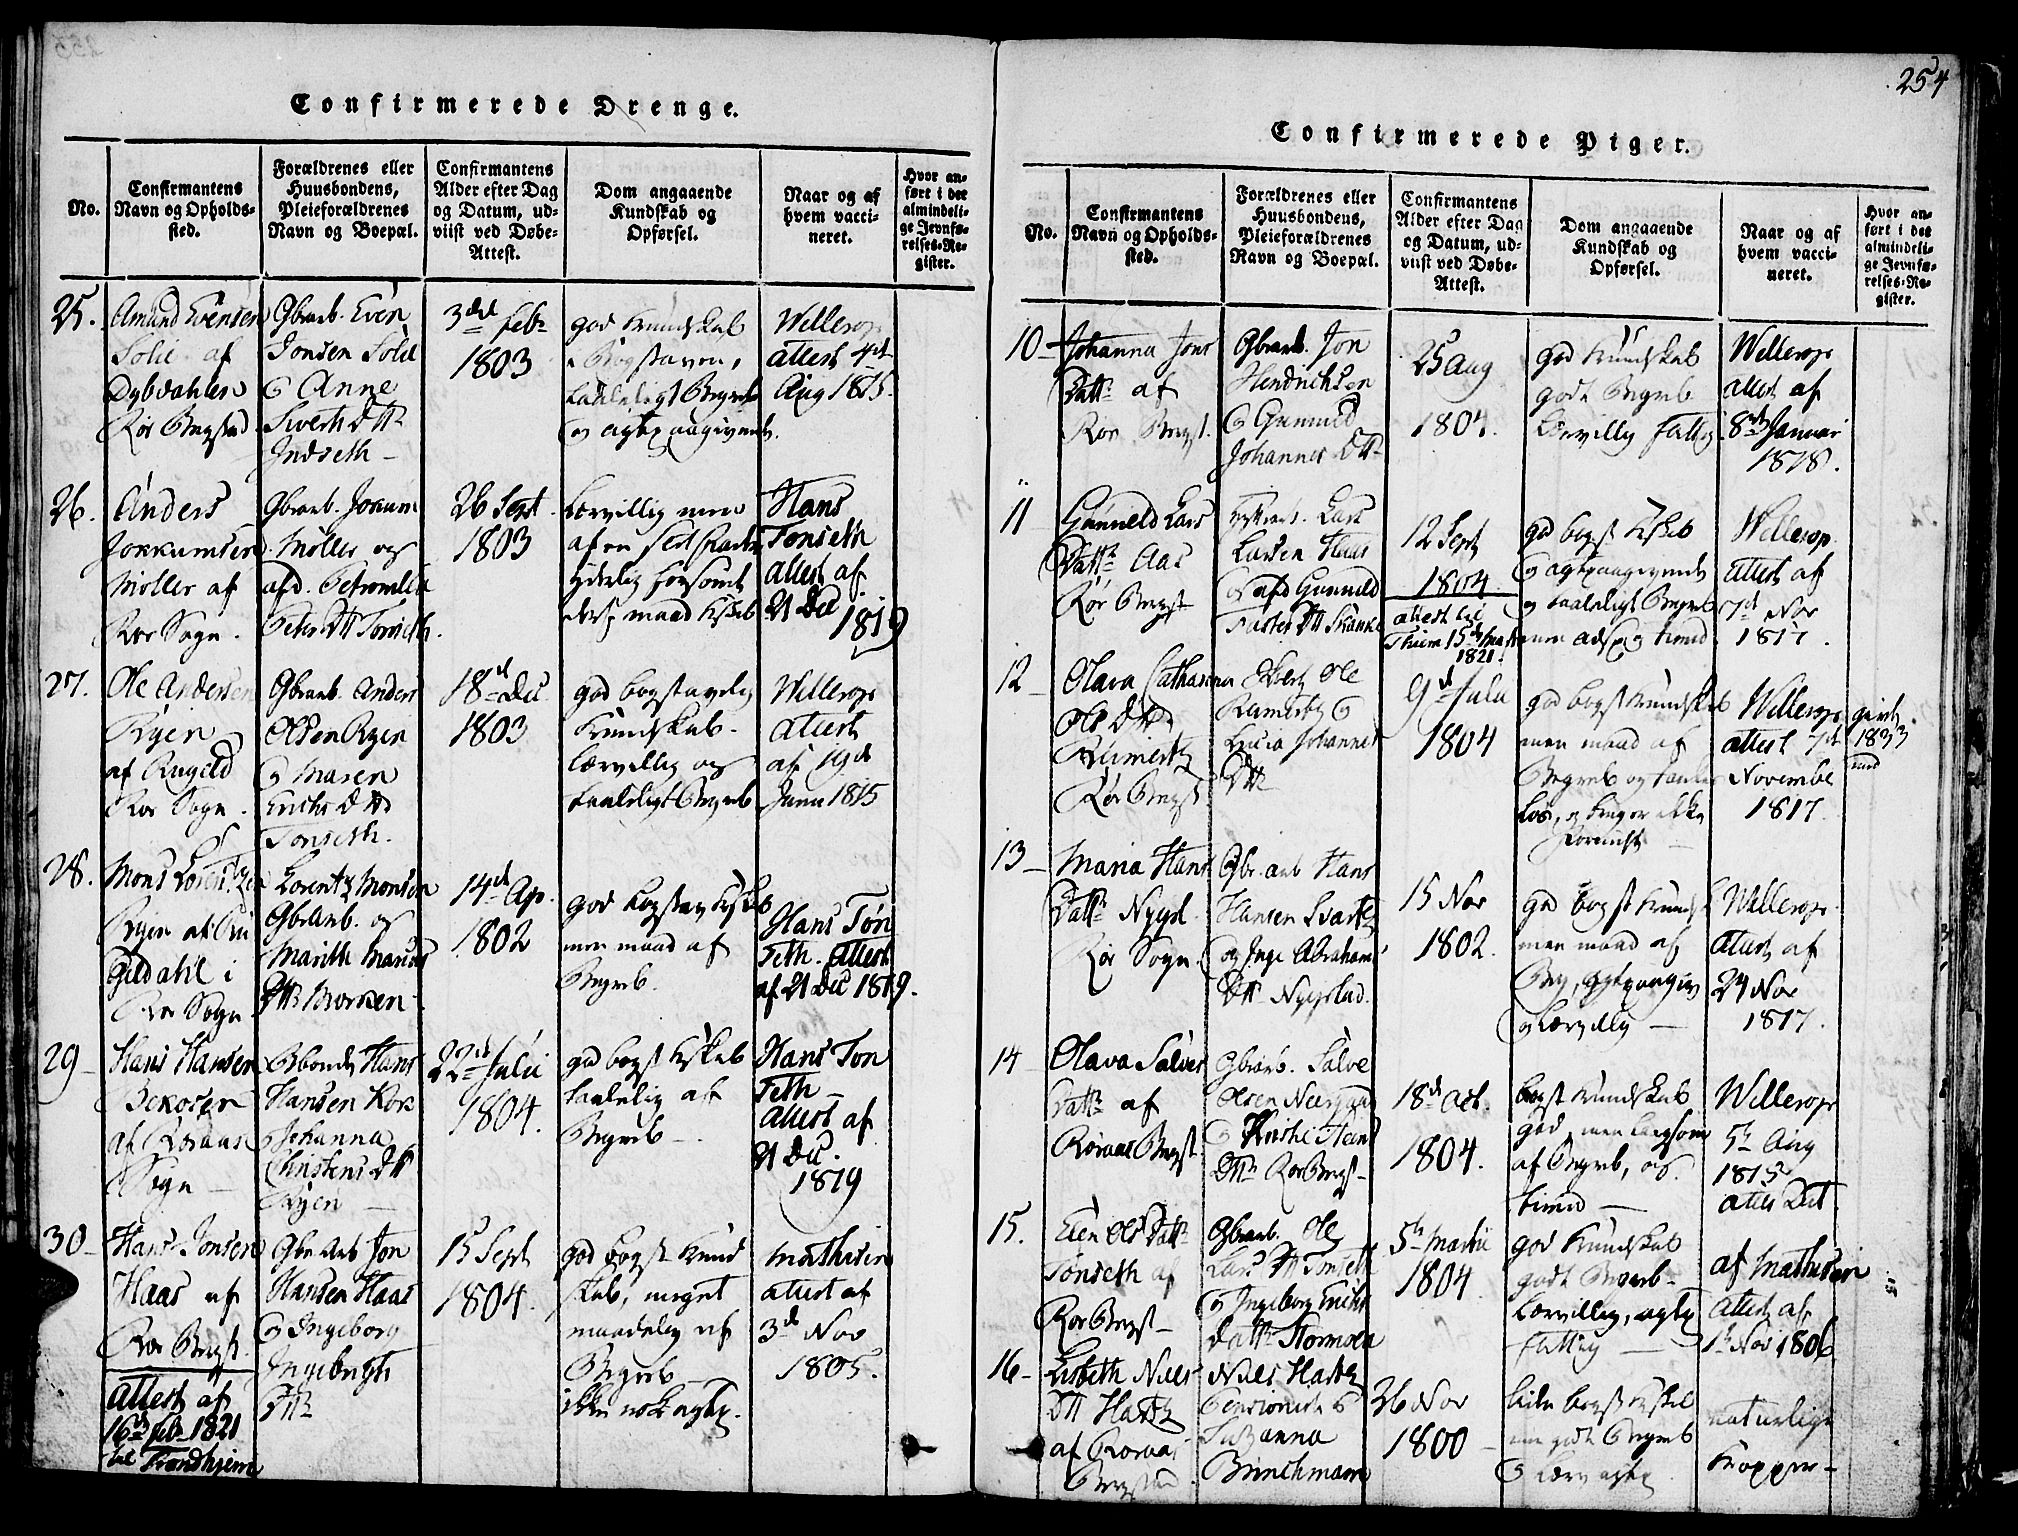 254
Confirmerede Drenge.
No.
Confirmantens
Navn og Opholds-
sted.
Forældrenes eller
Huusbondens,
Pleieforældrenes
Navn og Boepæl.
Confirmantens
Alder efter Dag
og Datum, ud-
viist ved Døbe-
Attest.
Dom angaaende
Kundskab og
Opførsel.
Naar og af
hvem vacci-
neret.
Hvor an-
ført i det
almindeli-
ge Jevnfø-
relses-Re-
gister.
25.
Amund Evensen
Solie af
Dybdahlen
Ror Bergstad
Gbrarb. Even
Jonsen Solie
& Anne
Sivertsdttr
Indseth
3die Febr
1803
god Kundskab
i Bogstaven,
taaleligt Begreb
og agtpaagivende.
Wellerop
attest 4de
Aug 1815.
26.
Anders
Jokkumsen
Møller af
Ror Sogn.
Gbrarb. Jocum
Møller og
afd. Petronella
Peters Dtt Tonseth.
26 Sept.
1803
Lærvillig men
Hans
Tonseth
attest af
21 Dec
1819
27.
Ole Andersen
Ryen
af Rugeld
Ror Sogn.
Gbrarb. Anders
Olsen Ryen
& Maren
Erichs Dttr
Tonseth.
18de Dec.
1803
god bogstavelig
Kundskab.
Lærvillig og
taaleligt Begreb
Wellerop
attest
af 19de
Juni 1815
28.
Mons Lorentzen
Ryen af
Gildahl i
Ror Sogn
Lorentz Monsen
Gbrarb. og
Marith Marius
Dttr Morsen
14de Ap.
1802
god bogstav Kskab
men maad af
Begreb.
Hans Ton
seth. Attest
af 21 Dec 1819.
29
Hans Hansen
Bekosen
af Roraas
Sogn
Hans
Hansen Kors
& Johanna
Christens Dtt
Ryen
22de Julii
1804.
god bogst Kskab
taalelig af
Begreb
Hans Ton
seth
attest af
21 Dec.
1819
30
Hans Jonsen
Haas af
Ror Bergst.
Attest af
16de Feb 1821
til Trondhjem
Gbr Arb Jon
Hansen Haas
& Ingeborg
Ingebrigts
Dttr
15 Sept
1804.
god bogst Kund
skab, meget
maadelig af
Begreb
ikke nok agtp.
Mathisen
attest af
3de Nov
1805.
Confirmerede Piger.
No.
Confirmantens
Navn og Opholds-
sted.
Forældrenes eller
Huusbondens,
Pleieforældrenes
Navn og Boepæl.
Confirmantens
Alder efter Dag
og Datum, ud-
viist ved Døbe-
Attest.
Dom angaaende
Kundskab og
Opførsel.
Naar og af
hvem vacci-
neret.
Hvor an-
ført i det
almindeli-
ge Jevnfø-
relses-Re-
gister.
10
Johanna Jons
Dattr af
Ror Bergst.
Gbrarb. Jon
Hendrichsen
& Gunnild
Johannes Dtt
25 Aug
1804.
god Kundskab
godt Begreb
Lærvillig fattig
Wellerop
attest af
8de Januar
1818.
11
Gunneld Lars
Dattr Aas
Ror Bergst
Lars
Larsen Haas
og afd Gunnild
Dtt Skanke
12 Sept
1804.
attest til
Thiem 15de Mart
1821.
god bogst Kskab
& agtpaagivende
og taaleligt Begreb
men adsp og timid.
Wellerop.
attest af
7de Nov
1817.
12
Olava Catharina
Ols Dttr
Reimertz
Ror Bergst
Ole
Reimertz &
Lucia Johannes
Dtt
9de Julii
1804
god bogst Kundskab
men maad af
Begreb og tanke
løs, og bruger ikke
Wellerop
attest 7de
Novembr
1817.
1833
13
Maria Hans
Dattr Nygd.
Ror Sogn.
Gbr. arb Hans
Hansen Svartz
og Inge Abrahams
Dtt Nygstad.
15 Nov
1802.
god bogst Kundsk
men maad af
Beg, agtpaagiv
& Lærvillig
Wellerop.
attest af
24 Nov
1817.
14
Olava Salves
Dattr af
Roraas Bergst
Gbrarb. Salve
Olsen Neergaard
& Kirsti Steens
Dttr Ror Bergst
18de Oct.
1804.
bogst Kundskab
god, men langsom
af Begreb, og
timid
Wellerop
5te Aug
1815
attes Dat
15.
Elen Ols Dattr
Tonseth af
Ror Bergst
Gbrarb. Ole
Lars Dtt Tonseth
og Ingeborg Erichs
Dattr Stormoen
5te Martii
1804
god Kundskab
godt Begreb
Lærvillig, agtp
fattig
af Mathisen
Attest af
1te Nov 1806
16
Lisbeth Niels
Dtt Hartz
af Roraas
Bergstad.
Niels Hartz
Pensionist &
Suzanna
Brinchmann
26 Nov
1800
liden bogst Kskab
men godt Begreb
& Lærv agtp.
naturlige
Kopper